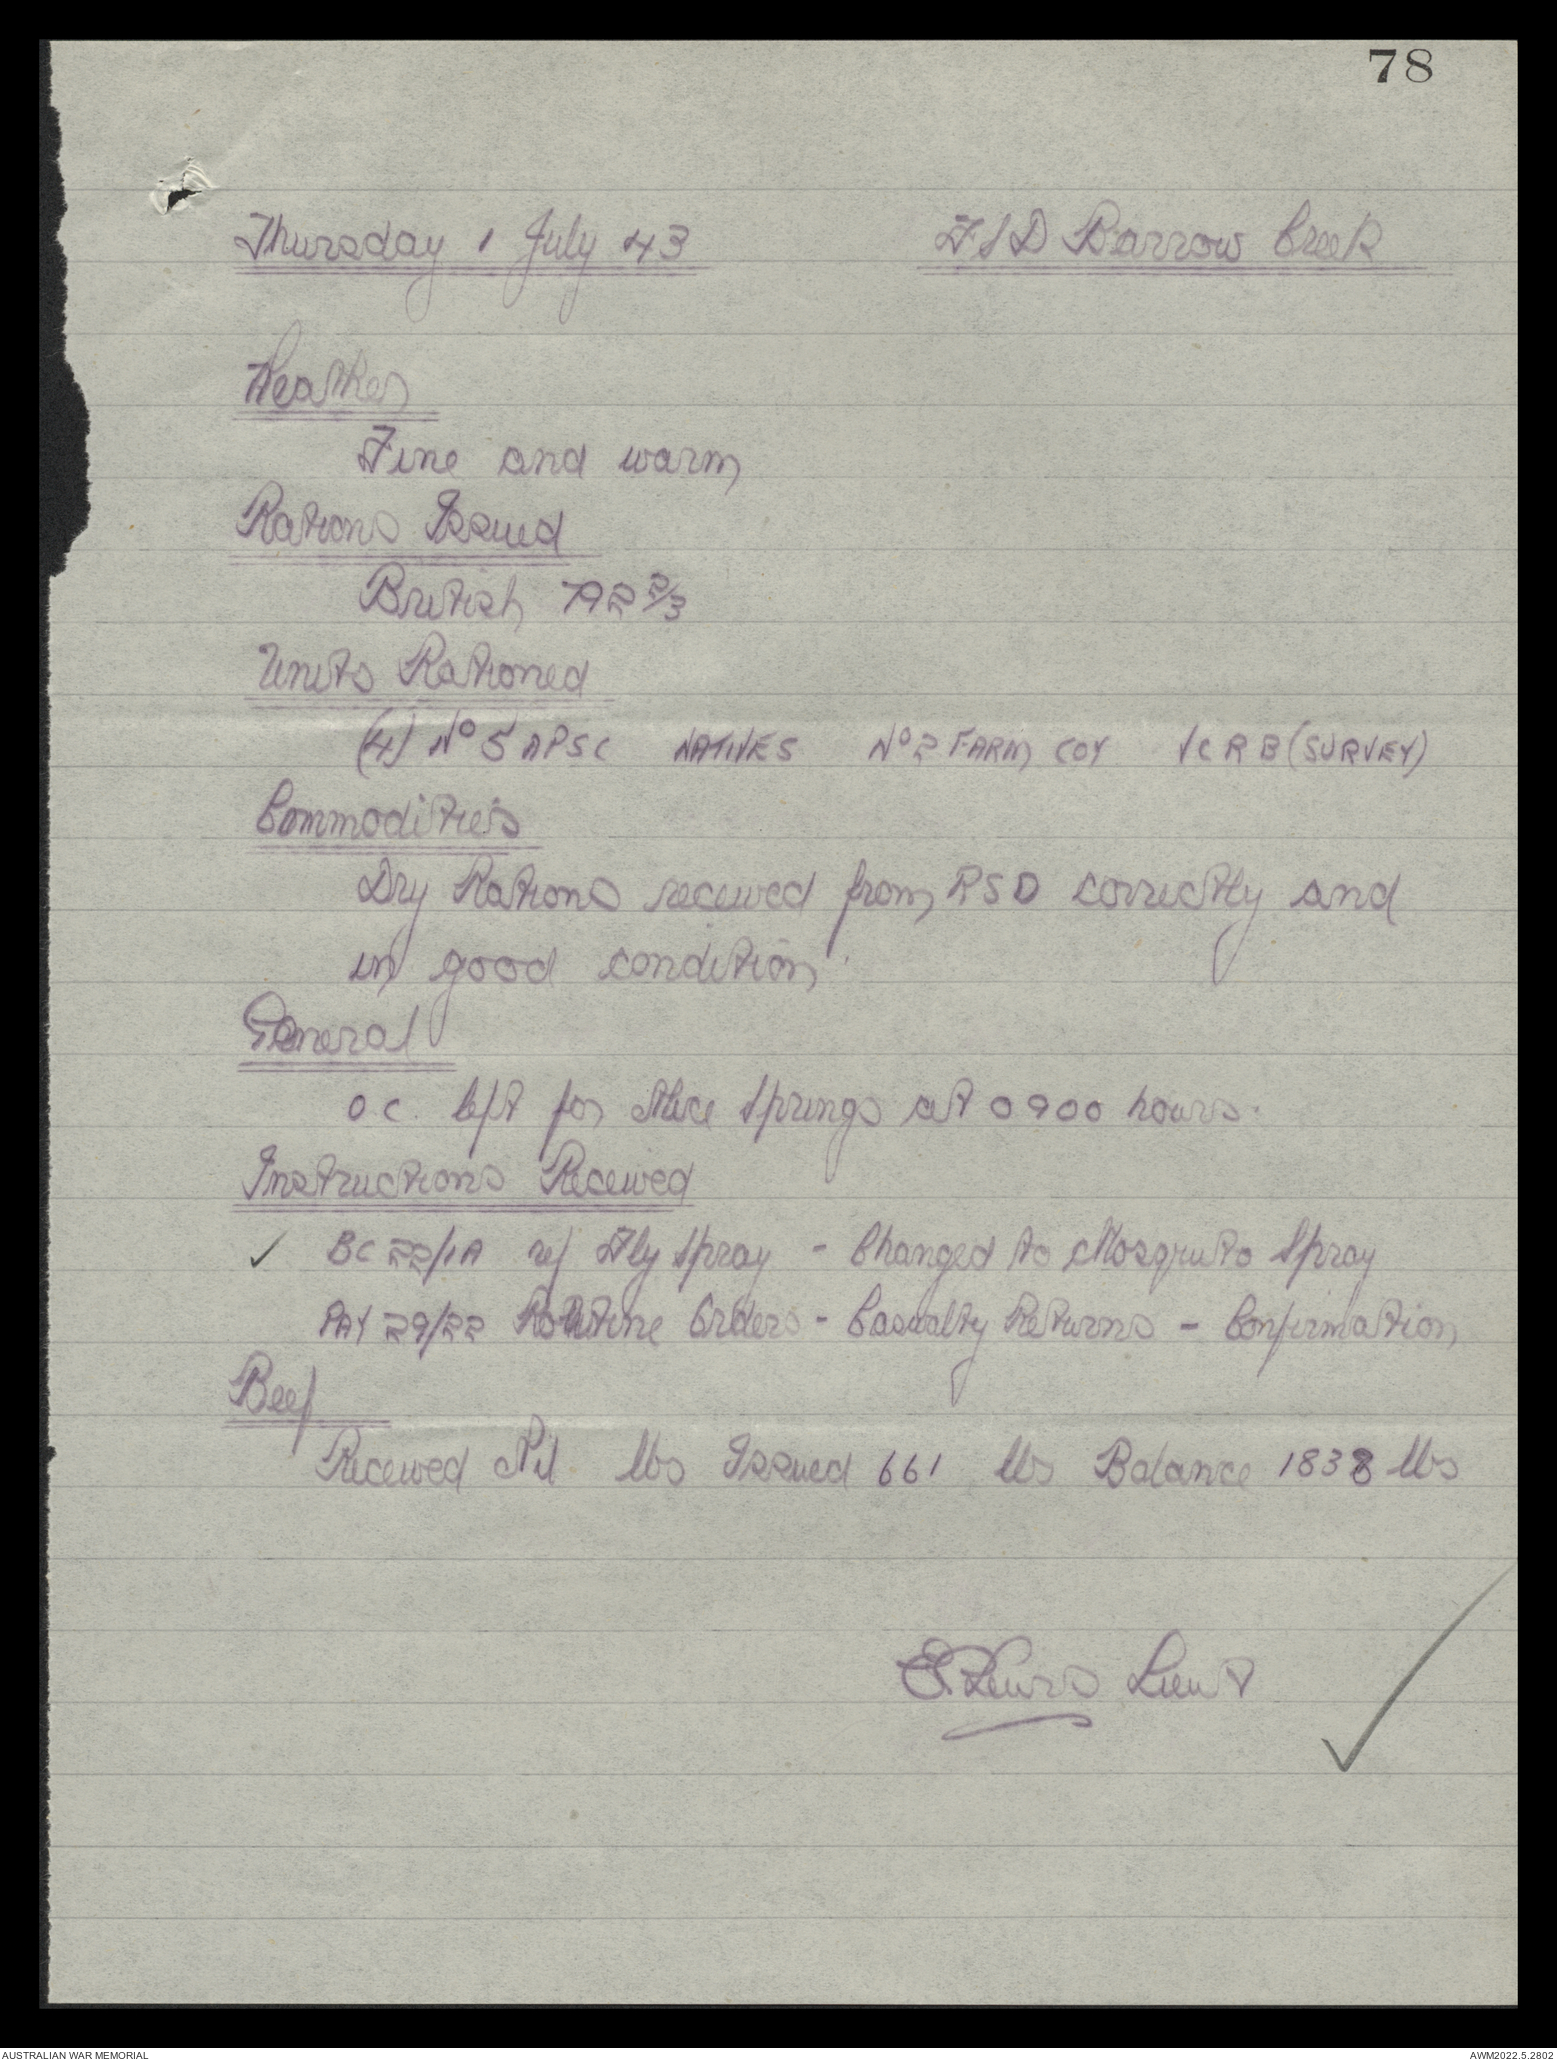 78
Thursday 1 July 43 FSD Barrow Creek
Weather
Fine and warm
Rations Issued
British 792 2/3
Units Rationed
(4) No 5 APSC NATIVES No 2 FARM COY VCRB (SURVEY)
Commodities
Dry Rations received from RSD correctly and
in good condition.
General
O.C. left for Alice Springs at 0900 hours.
Instructions Received
✓ BC 22/1A re/ Fly Spray - Changed to Mosquito Spray
PAY 29/22 Routine Orders - Casualty Returns - Confirmation
Beef
Received Nil lbs Issued 661 lbs Balance 1838 lbs
Lewis Lieut
AUSTRALIAN WAR MEMORIAL AWM2022.5.2802